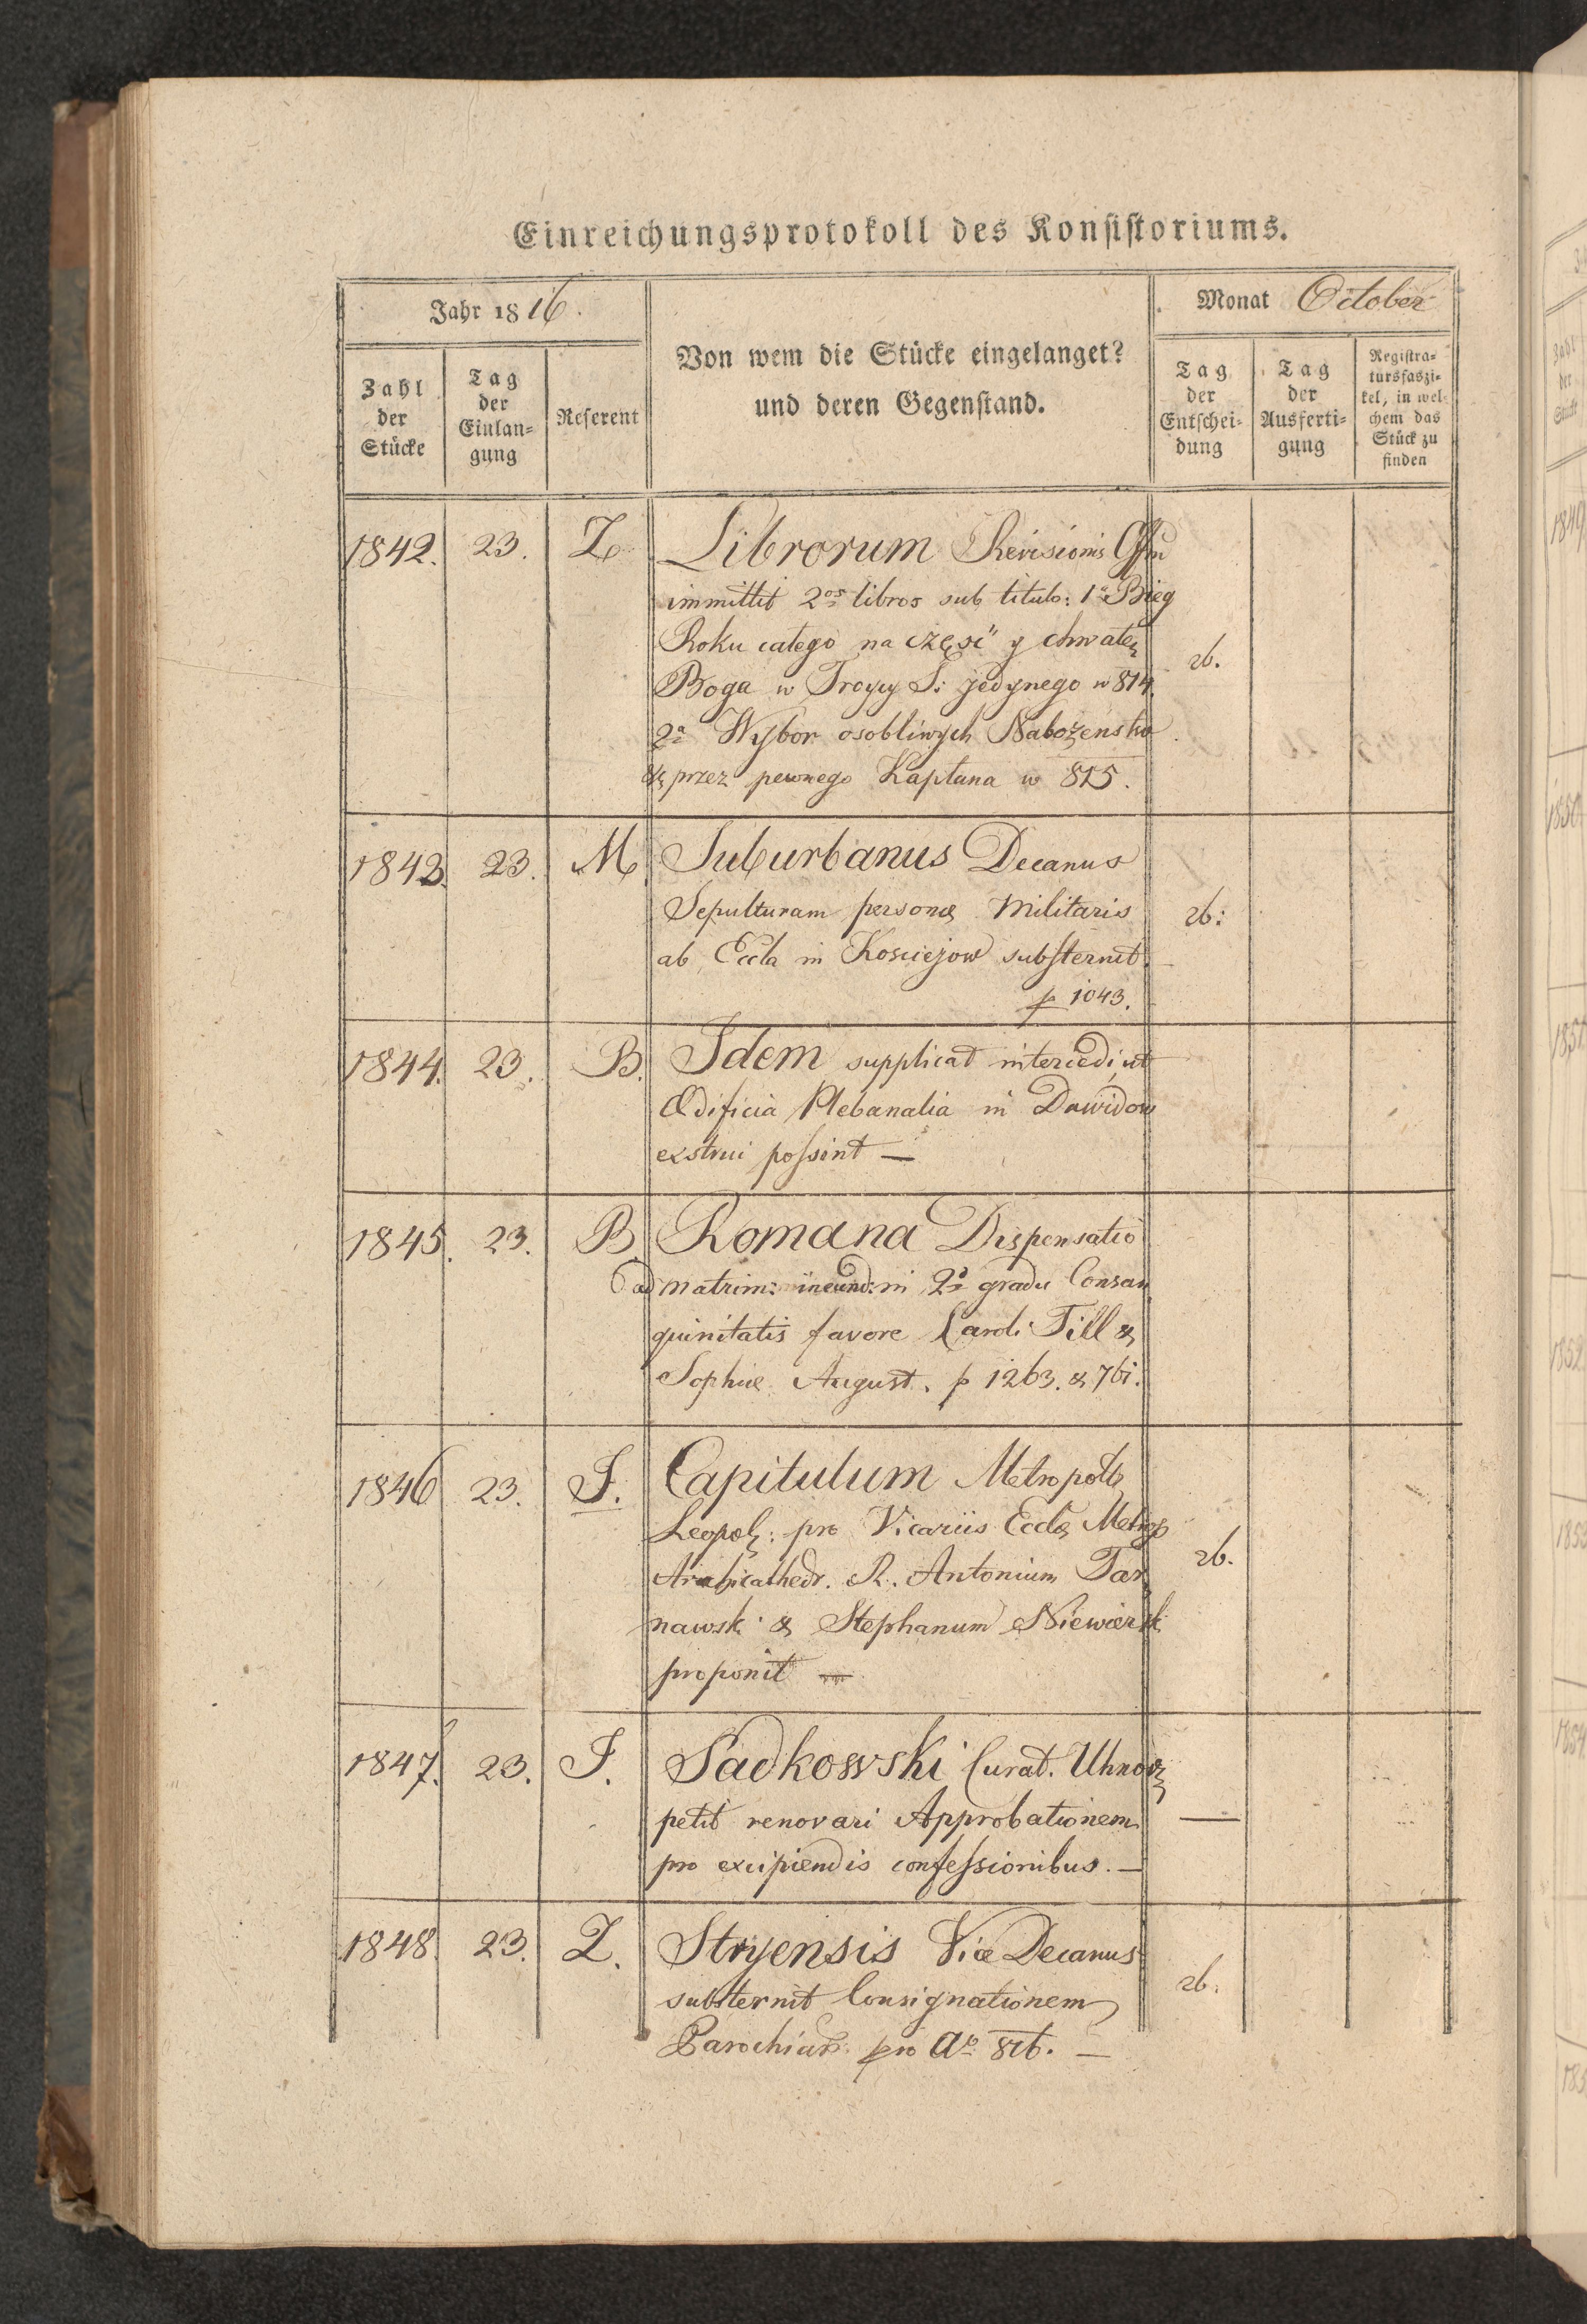 Einreichungsprotokoll des Konsistoriums.
Jahr 1816.
Monat October
Zahl der Stücke
Tag der Einlangung
Referent
Von wem die Stücke eingelanget?
und deren Gegenstand.
Tag der Entscheidung
Tag der Ausfertigung
Registratursfaszikel, in welchem das Stück zu finden
1842. 23. Z. Librorum Revisionis Offm
immittit 2os libros sub titulo: 1o Bieg
Roku całego na część y chwałę
Boga w Troycy S: jedynego w 814.
2o Wybor osobliwych Nabożenstw
& przez pewnego Kapłana w 815.
26.
1843. 23. M. Suburbanus Decanus
Sepulturam personæ Militaris
ab Eccla in Kosciejow substernit.
p 1043.
26:
1844. 23. B. Idem supplicat intercedi, ut
Ædificia Plebanalia in Dawidow
exstrui possint —
1845. 23. B. Romana Dispensatio
ad matrim: ineund: in 2o gradu Consan
guinitatis favore Caroli Till &
Sophiæ August. p 1263. & 761.
1846 23. I. Capitulum Metropol
Leopol: pro Vicariis Eccle Metrop
Archicathedr. R. Antonium Tar
nawski & Stephanum Niewierski
proponit —
26.
1847. 23. I. Sadkowski Curat. Uhnov
petit renovari Approbationem
pro excipiendis confessionibus. —
—
1848. 23. Z. Stryensis Vice Decanus
substernit Consignationem
Parochiar: pro Ao 816. —
26.